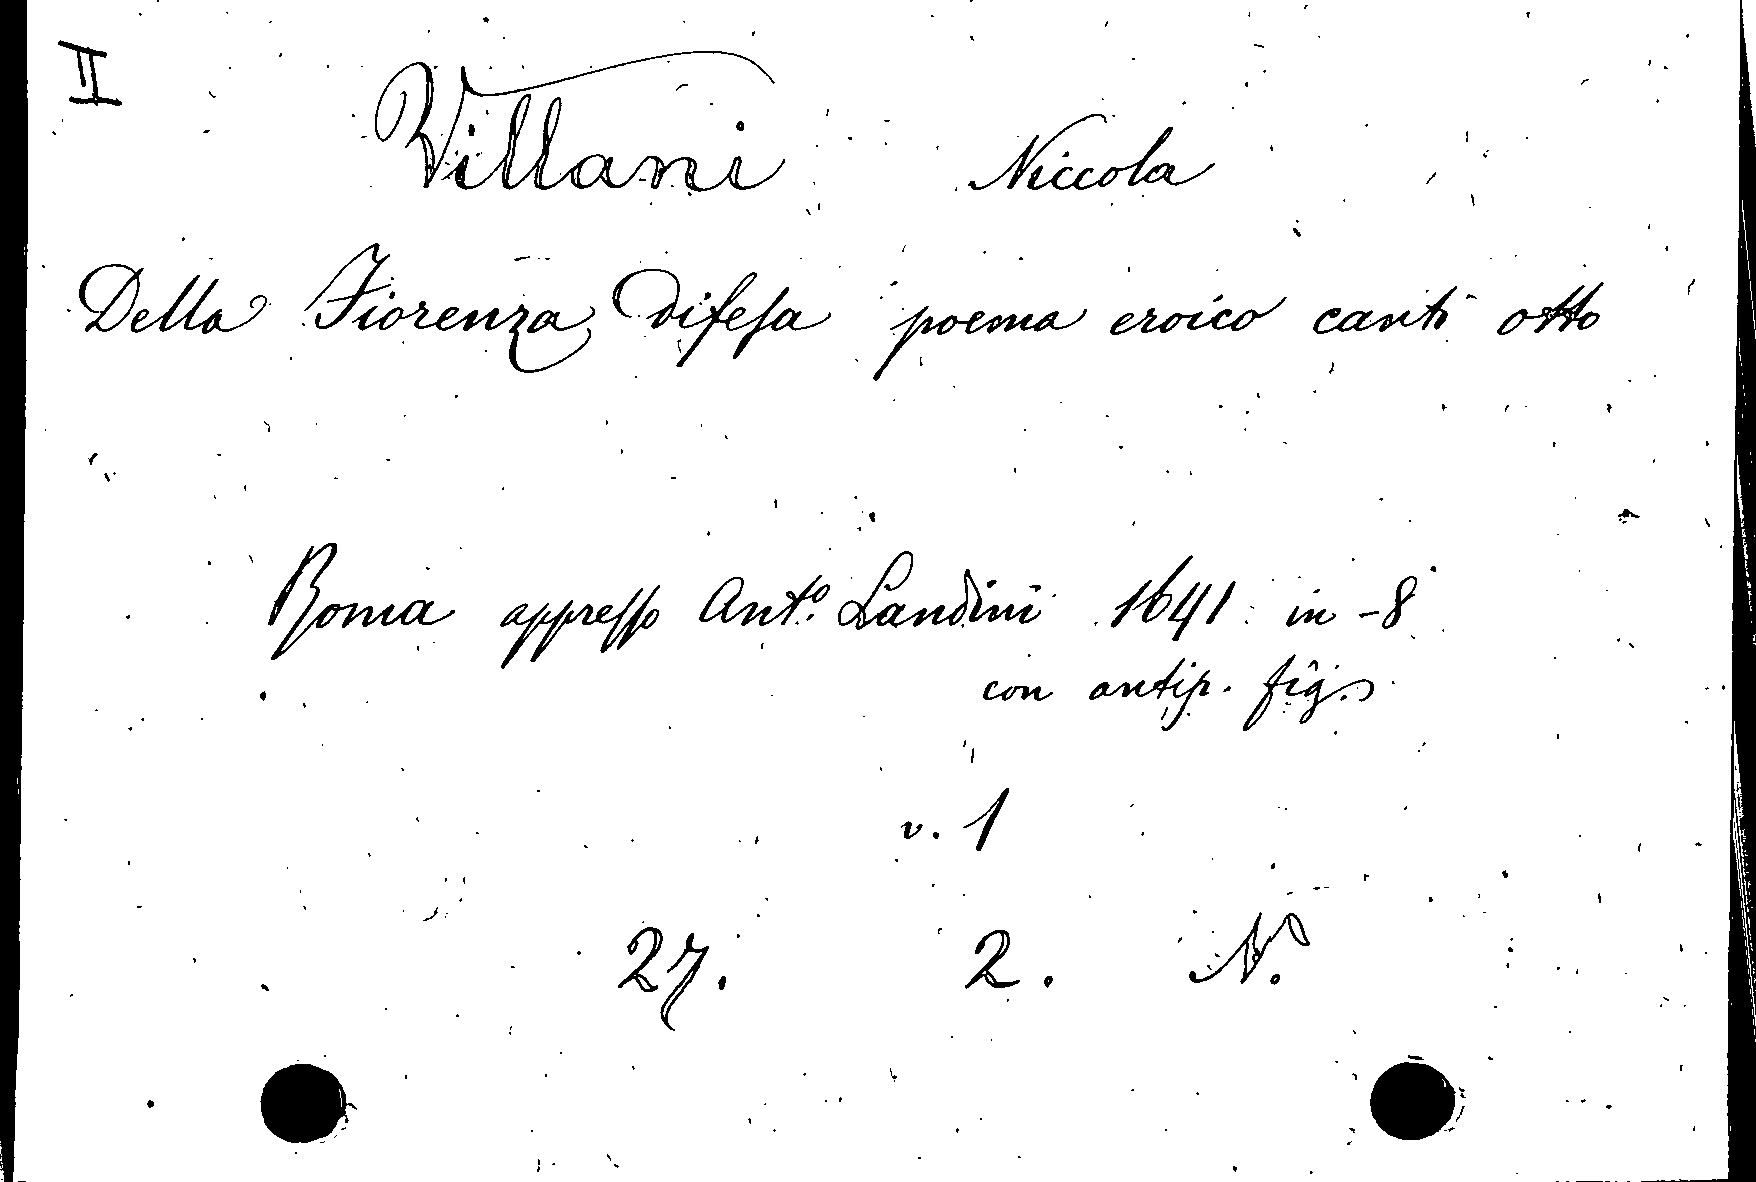 II
Villani Niccola
Della Fiorenza difesa poema eroico canti otto
Roma appresso Ant.º Landini 1641 in-8
con antip. fig.
v. 1
27. 2. N.